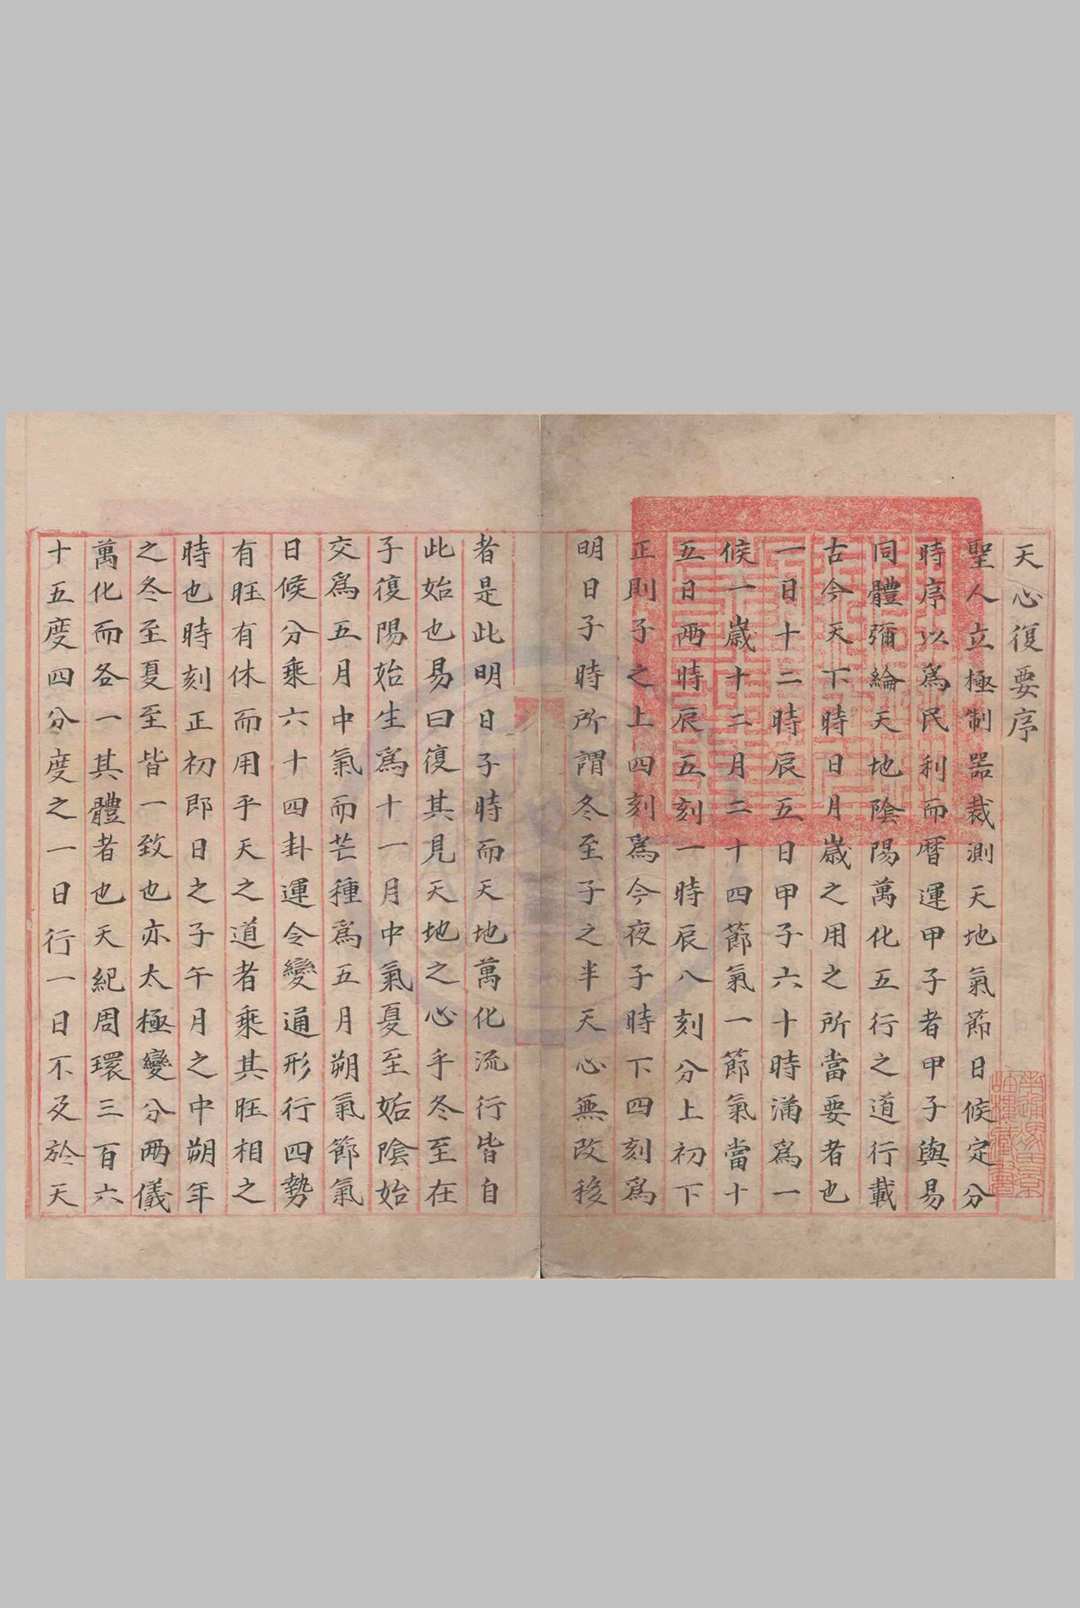 天心復要序
聖人立極制器裁測天地氣節日候定分
時序以爲民利而曆運甲子者甲子與易
同體彌綸天地陰陽萬化五行之道行載
古今天下時日月歲之用之所當要者也
一日十二時辰五日甲子六十時滿爲一
候一歲十二月二十四節氣一節氣當十
五日兩時辰五刻一時辰八刻分上初下
正則子之上四刻爲今夜子時下四刻爲
明日子時所謂冬至子之半天心無改移
者是此明日子時而天地萬化流行皆自
此始也易曰復其見天地之心乎冬至在
子復陽始生爲十一月中氣夏至姤陰始
交爲五月中氣而芒種爲五月朔氣節氣
日候分乘六十四卦運令變通形行四勢
有旺有休而用乎天之道者乘其旺相之
時也時刻正初即日之子午月之中朔年
之冬至夏至皆一致也亦太極變分兩儀
萬化而各一其體者也天紀周環三百六
十五度四分度之一日行一日不及於天